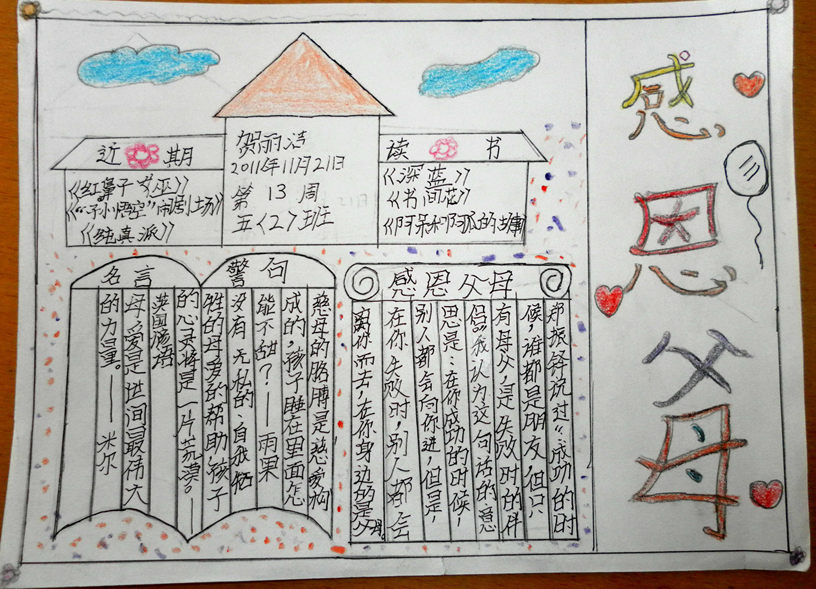 近期
《红鼻子女巫》
小悟空”闹剧
《纯真派》
贺雨洁
2011年11月21日
第 13 周
五〈2〉班
读书
《深蓝》
《书间花》
《阿呆和阿
名言 警句
慈母的胳膊是慈爱构
成的,孩子睡在里面怎
能不甜?——雨果
没有无私的、自我牺
牲的母爱的帮助,孩子
的心灵将是一片荒漠。——
英国成语
母爱是世间最伟大
的力量。——米尔
感恩父母
郑振铎说过“成功的时
候,谁都是朋友,但只
有母父,是失败时的伴
侣”我认为这句话的意
思是:在你成功的时候,
别人都会向你进,但是,
在你失败时,别人都会
离你而去,在你身边的是父母。
感恩父母